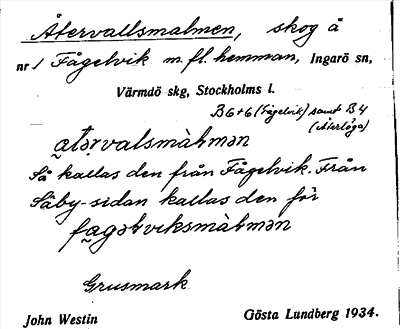 Återvallsmalmen, skog å
nr 1 Fågelvik m. fl. hemman, Ingarö sn,
Värmdö skg, Stockholms l.
B6+6 (Fågelvik) samt B4
(Återlöga)
ɑtərvalsmàlmən
Så kallas den från Fågelvik. Från
Säby-sidan kallas den för
fɑgəlviksmàlmən
Grusmark
John Westin
Gösta Lundberg 1934.